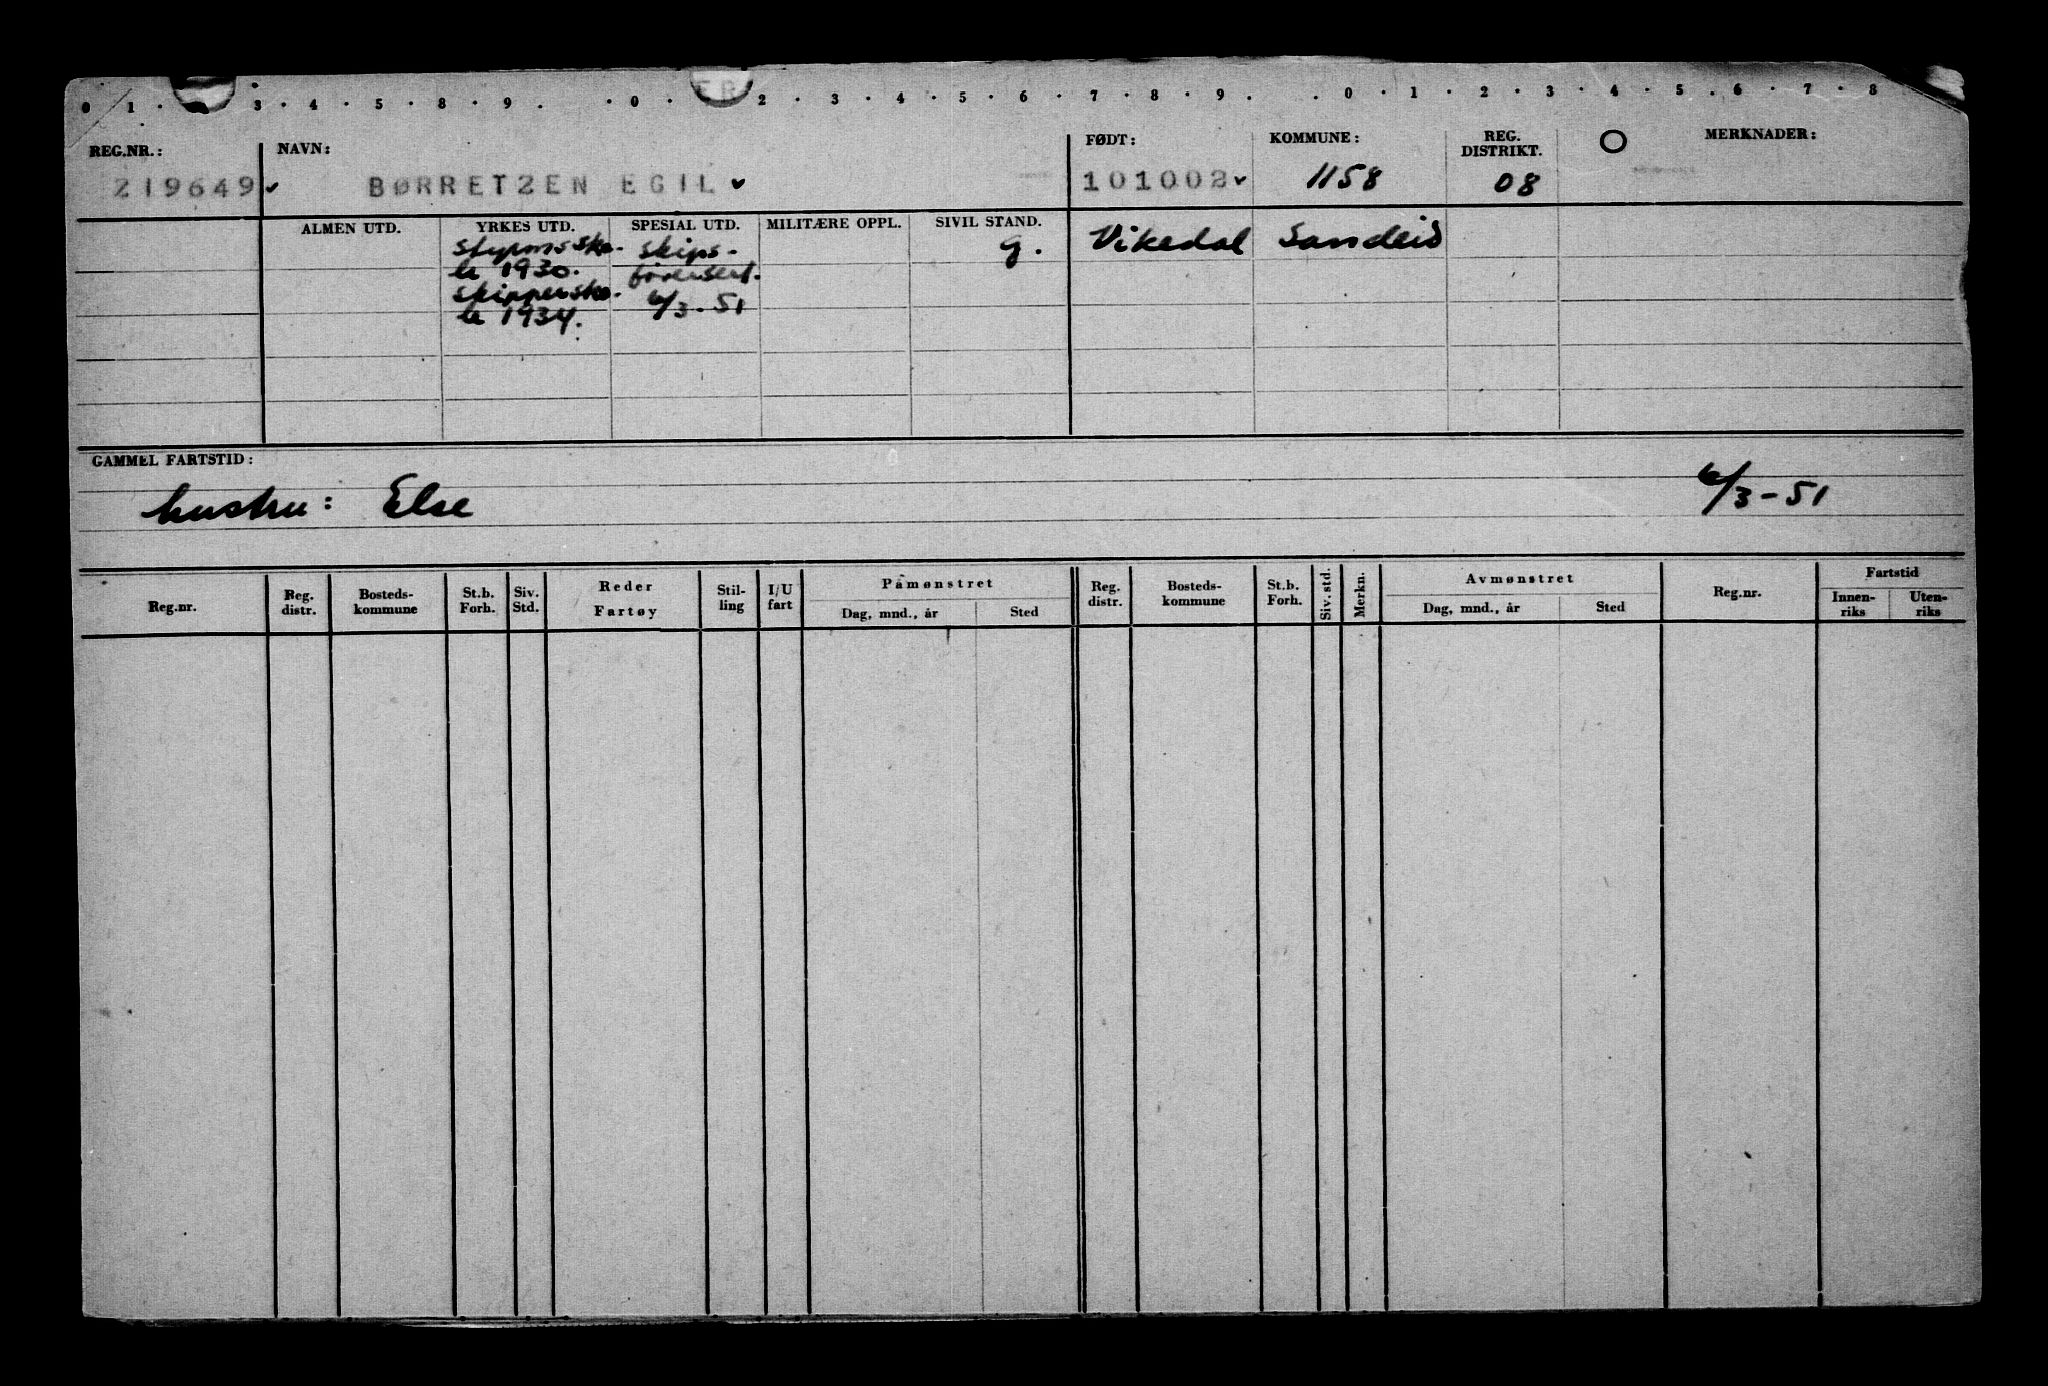 0 1 · 3 · 4 · 5 · 8 · 9 · · 0 · 2 · 3 · 4 · 5 · 6 · 7 · 8 · 9 · · 0 · 1 · 2 · 3 · 4 · 5 · 6 · 7 · 8
REG.NR.: NAVN: FØDT: KOMMUNE: REG. DISTRIKT. MERKNADER:
219649 BØRRETZEN EGIL 101002 1158 08
ALMEN UTD. YRKES UTD. SPESIAL UTD. MILITÆRE OPPL. SIVIL STAND.
styrmsska- skips- g. Vikedal Sandeid
le 1930. förersert.
skipperska- 6/3-51
le 1934.
GAMMEL FARTSTID:
hustru: Else 6/3-51
Reg.nr. Reg. distr. Bosteds-kommune St.b. Forh. Siv. Std. Reder Fartøy Stil-ling I/U fart Påmønstret Dag, mnd., år Sted Reg. distr. Bosteds-kommune St.b. Forh. Siv. std. Merkn. Avmønstret Dag, mnd., år Sted Reg.nr. Fartstid Innen-riks Uten-riks